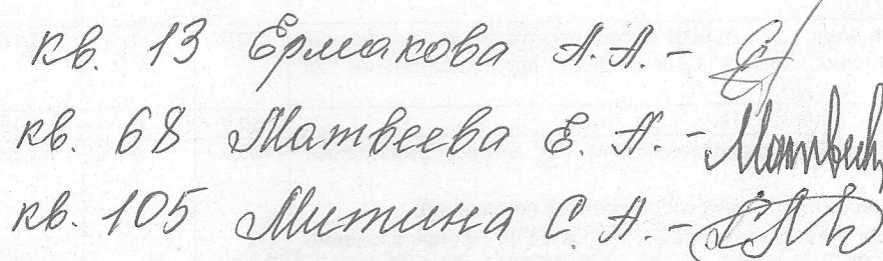 кв. 13 Ермакова А.А. -
кв. 68 Матвеева Е. А. - Матвеев
кв. 105 Митина С. А. -